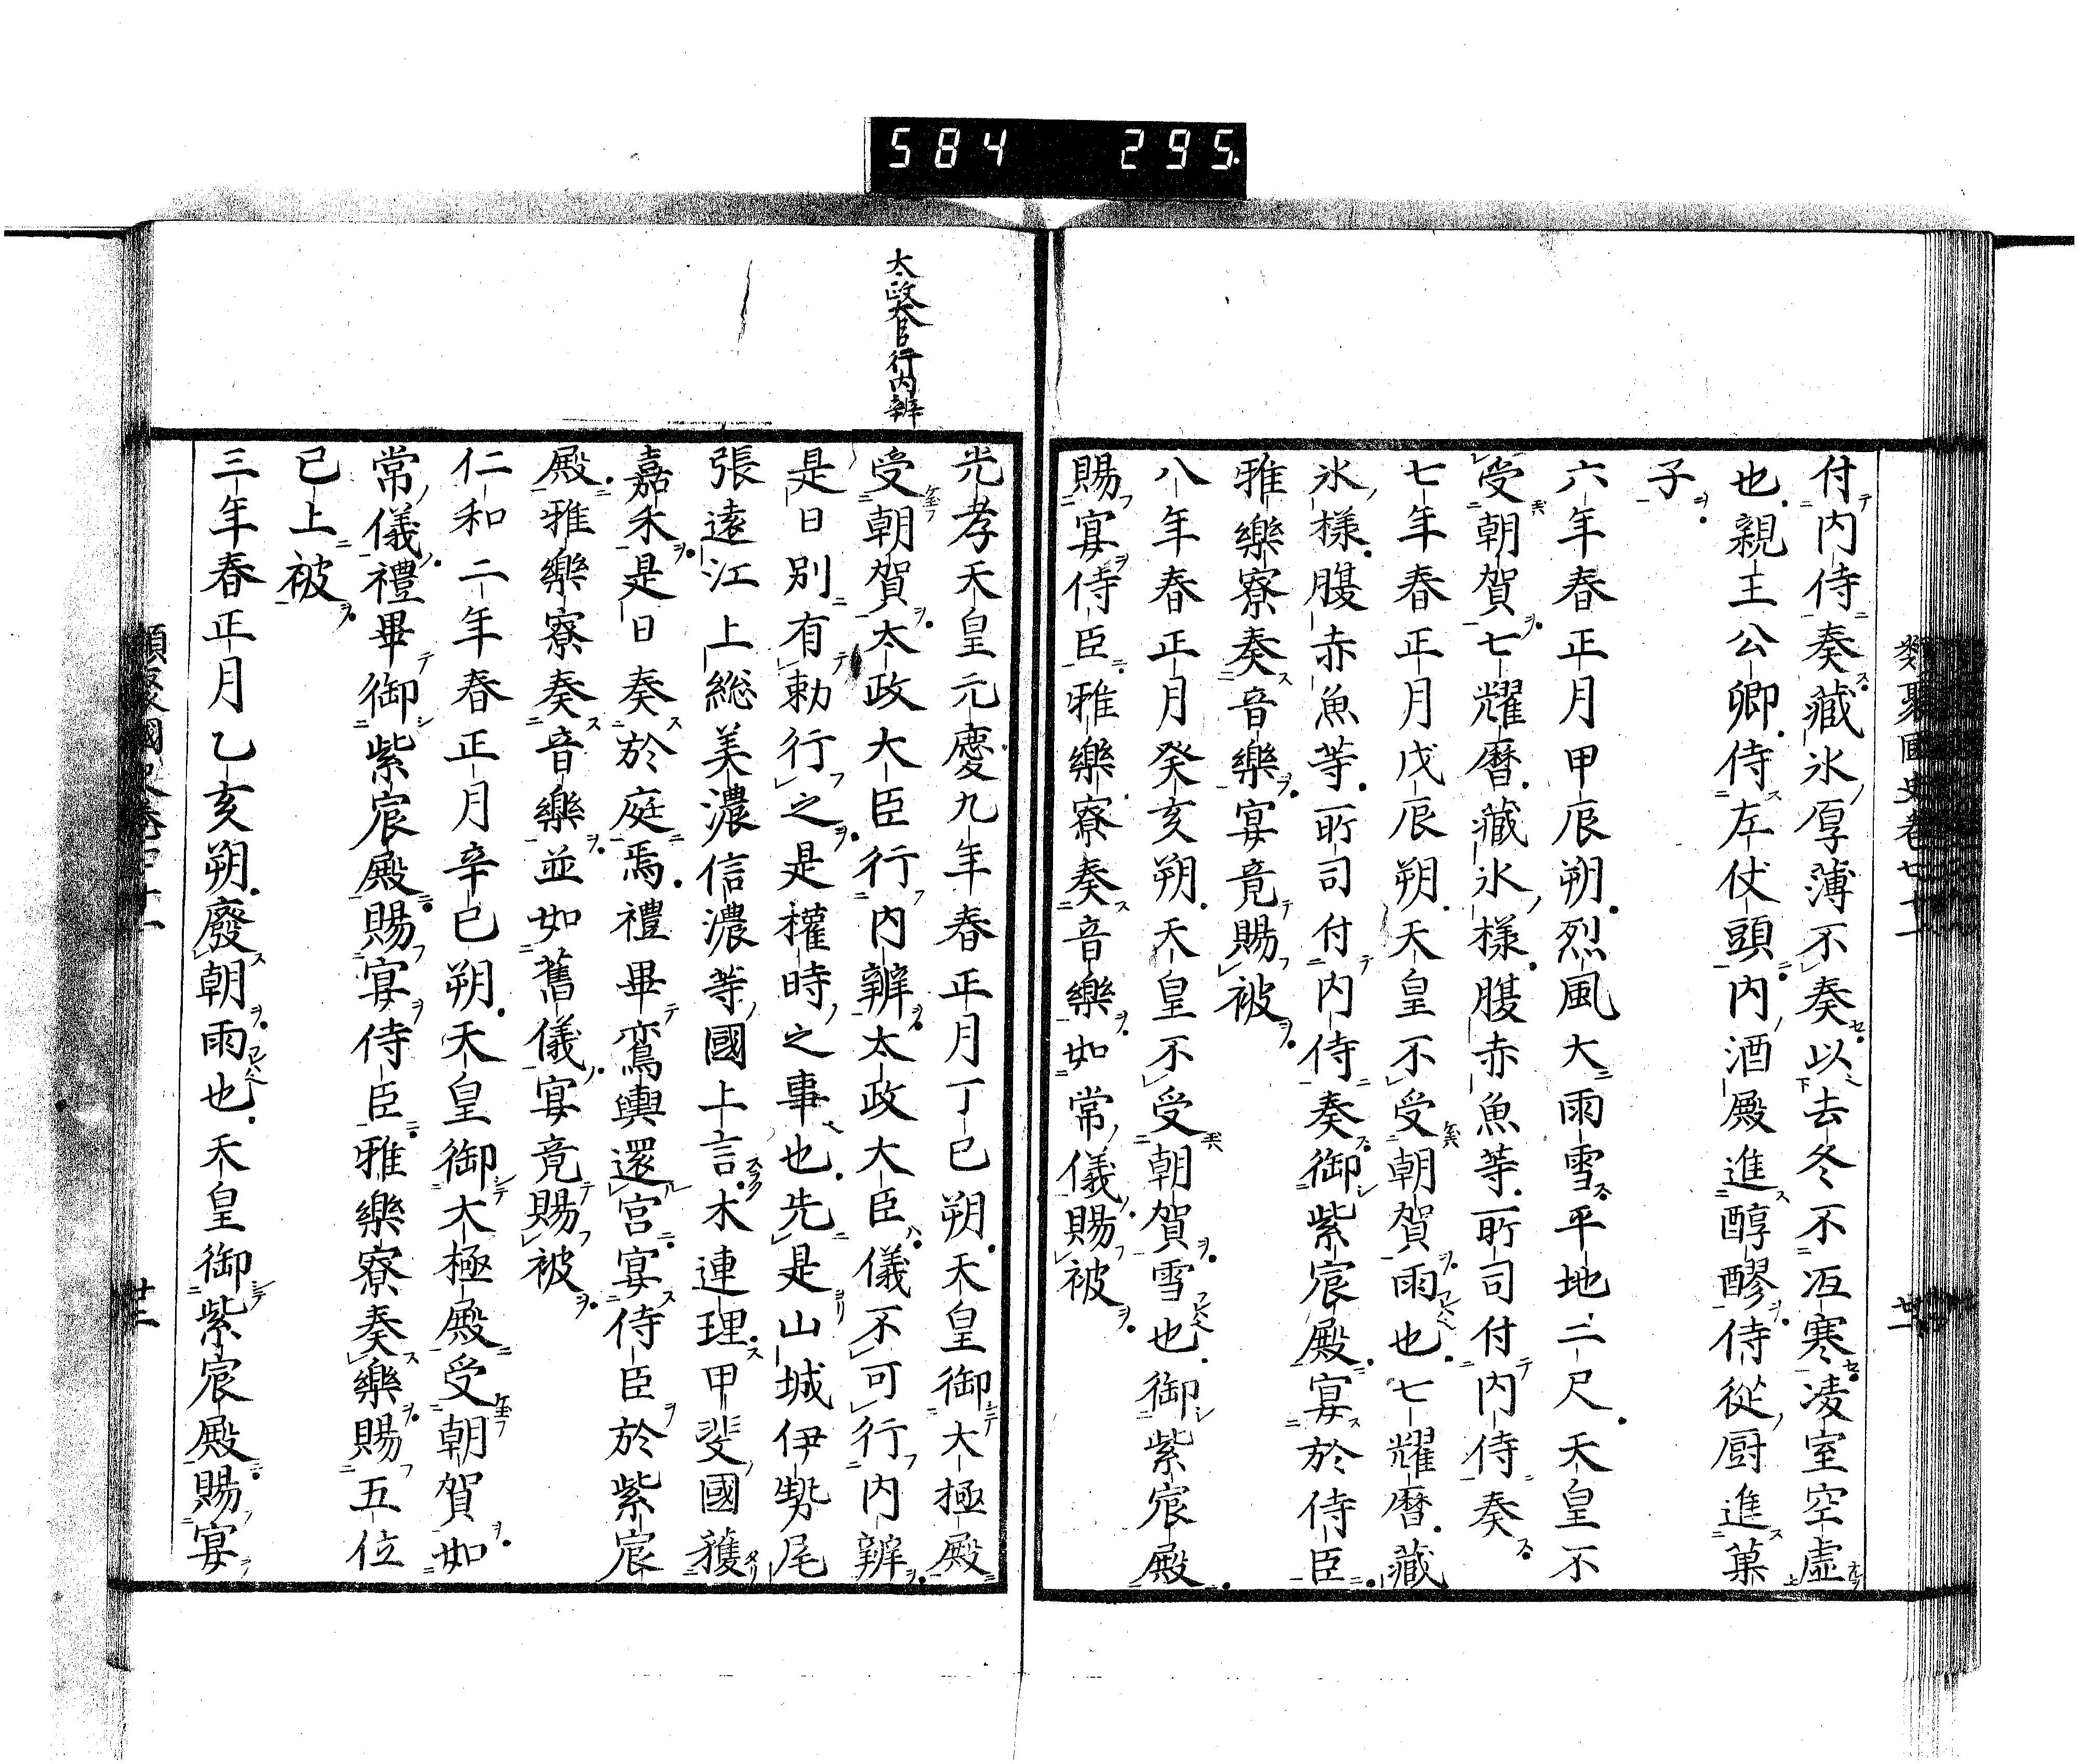 584 295
類聚國史卷七十一
廿一
付内侍奏藏氷厚薄不奏以去冬不沍寒凌室空虛
也親王公卿侍左仗頭内酒殿進醇醪侍從厨進菓
子
六年春正月甲辰朔烈風大雨雪平地二尺天皇不
受朝賀七耀曆藏氷樣腹赤魚等所司付内侍奏
七年春正月戊辰朔天皇不受朝賀雨也七耀曆藏
氷樣腹赤魚等所司付内侍奏御紫宸殿宴於侍臣
雅樂寮奏音樂宴竟賜被
八年春正月癸亥朔天皇不受朝賀雪也御紫宸殿
賜宴侍臣雅樂寮奏音樂如常儀賜被
太政大臣行内辨
光孝天皇元慶九年春正月丁巳朔天皇御大極殿
受朝賀太政大臣行内辨太政大臣儀不可行内辨
是日別有勅行之是權時之事也先是山城伊勢尾
張遠江上総美濃信濃等國上言木連理甲斐國獲
嘉禾是日奏於庭焉禮畢鸞輿還宮宴侍臣於紫宸
殿雅樂寮奏音樂並如舊儀宴竟賜被
仁和二年春正月辛巳朔天皇御大極殿受朝賀如
常儀禮畢御紫宸殿賜宴侍臣雅樂寮奏樂賜五位
已上被
三年春正月乙亥朔廢朝雨也天皇御紫宸殿賜宴
類聚國史卷七十一
廿二